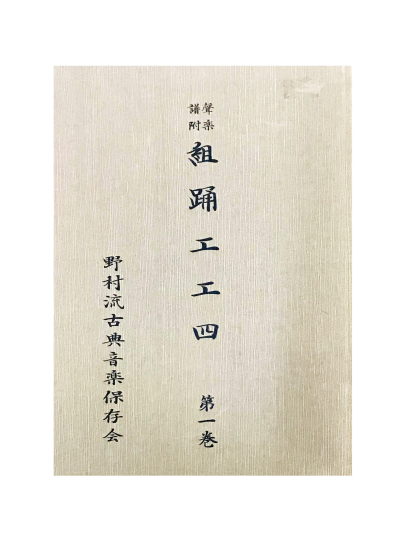 聲楽
譜附
組踊工工四
第一巻
野村流古典音楽保存会